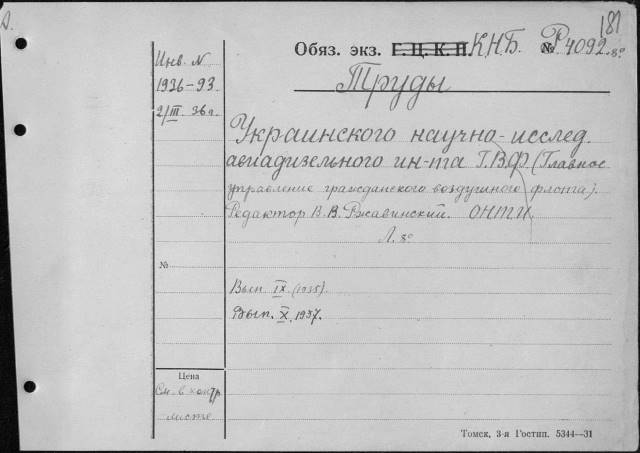 181
Обяз. экз. Г.Ц.К.П. К.Н.Б. № Р4092 8°
Труды
Инв. N
1936-93
2/III 36 г.
Украинского научно-исслед.
авиадизельного ин-та Г.В.Ф. (Главное
управление гражданского воздушного флота).
Редактор В. В. Ржавинский. ОНТИ.
Л. 8°
№
Вып. IX (1935).
Вып. X. 1937.
Цена
См. в контр.
листе
Томск, 3-я Гостип. 5344—31